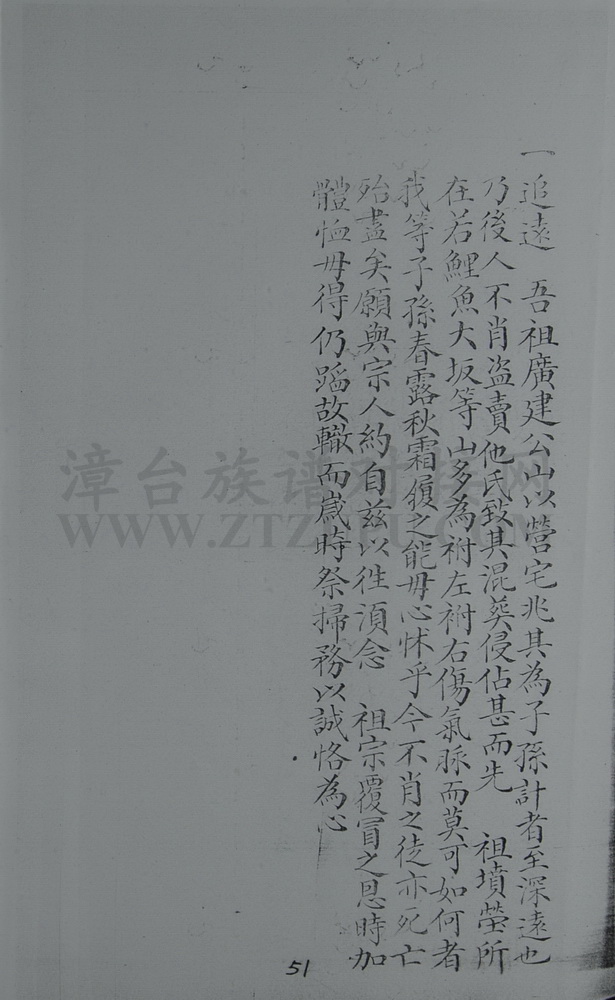 一追遠　吾祖廣建公山以營宅兆其為子孫計者至深遠也
乃後人不肖盗賣他氏致其混葬侵佔甚而先　祖墳塋所
在若鯉魚大坂等山多為祔左祔右傷氣脉而莫可如何者
我等子孫春露秋霜履之能毋心怵乎今不肖之徒亦死亡
殆盡矣願與宗人約自兹以徃湏念　祖宗覆冒之恩時加
體恤毋得仍蹈故轍而嵗時祭掃務以誠恪為心
51
漳台族谱对接网
WWW.ZTZUPU.COM